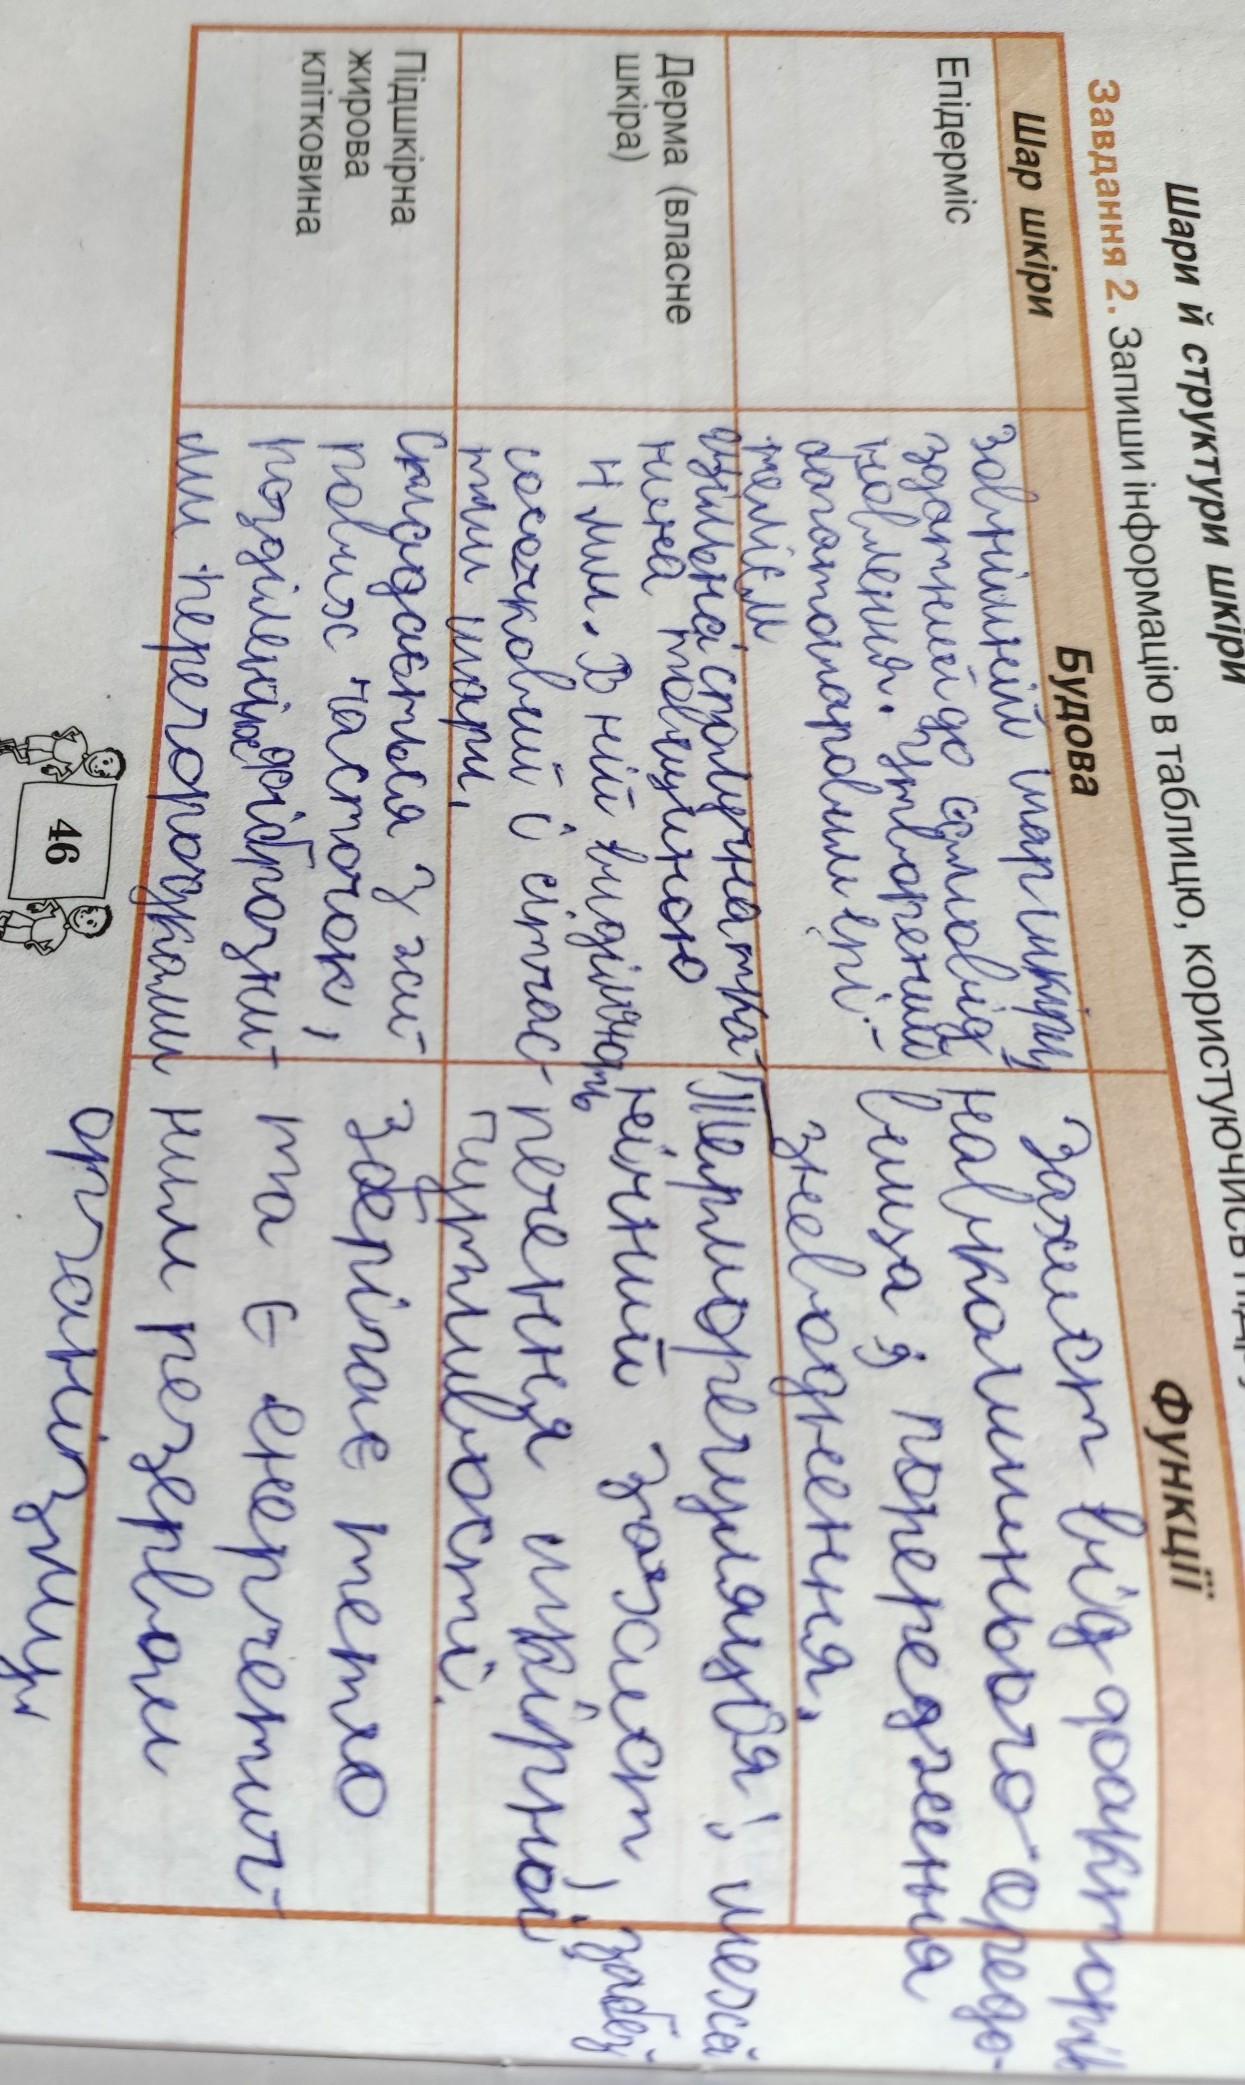 Шари й структури шкіри
Завдання 2. Запиши інформацію в таблицю, користуючись
Шар шкіри
Будова
Функції
Епідерміс
Зовнішній шар шкіри
здатний до самовід
новлення. Утворений
багатошаровим епі-
телієм
Захист від факторів
навколишнього середо-
вища й попередження
зневоднення.
Дерма (власне
шкіра)
щільна сполучна тка-
нина товщиною
мм. В ній виділяють
сосочковий і сітчас-
тий шари.
Терморегуляція; меха
нічний захист, забез
печення шкірної
чутливості.
Підшкірна
жирова
клітковина
Складається з жи-
рових часточок,
розділених фіброзни-
ми перегородками
Зберігає тепло
та є енергетич-
ним резервом
організму
46